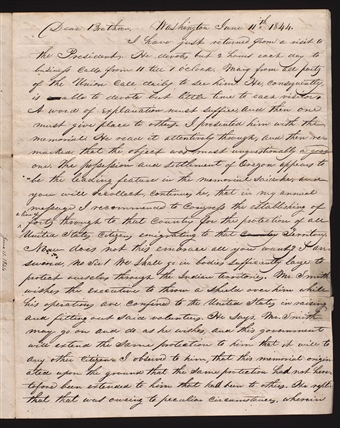 Dear Brethren, Washington June 11th 1844.
I have just returned from a visit to
the President. He devotes but 2 hours each day to
business Calls from 11 till 1 oclock. Many from all parts
of the Union Call daily to see him. He, consequently
is able to devote but little time to each visitor.
A word of explanation must suffice and then one
must give place to others. I presented him with the
memorial. He read it attentively through, and then re-
marked that the object was most unquestionably a good
one. The possession and settlement of Oregon appears to
be the leading feature in the memorial said he and
you will recollect, continues he, that in my annual
message I recommended to Congress the establishing of
forts through to that Country for the protection of all
United States Citizens emigrating to that Territory.
Now does not this embrace all your wants? I an-
swered, No Sir! We shall go in bodies sufficiently large to
protect ourselves through the Indian territories. Mr Smith
wishes the executive to throw a shield over him while
his operations are Confined to the United States in raising
and fitting out said volunteers. He says Mr Smith
may go on and do as he wishes, and this government
will extend the same protection to him that it will to
any other Citizen. I observed to him, that this memorial origin-
ated upon the ground that the same protection had not here-
tofore been extended to him that had been to others. He replied
that that was owing to peculiar circumstances, wherein
June 11, 1844